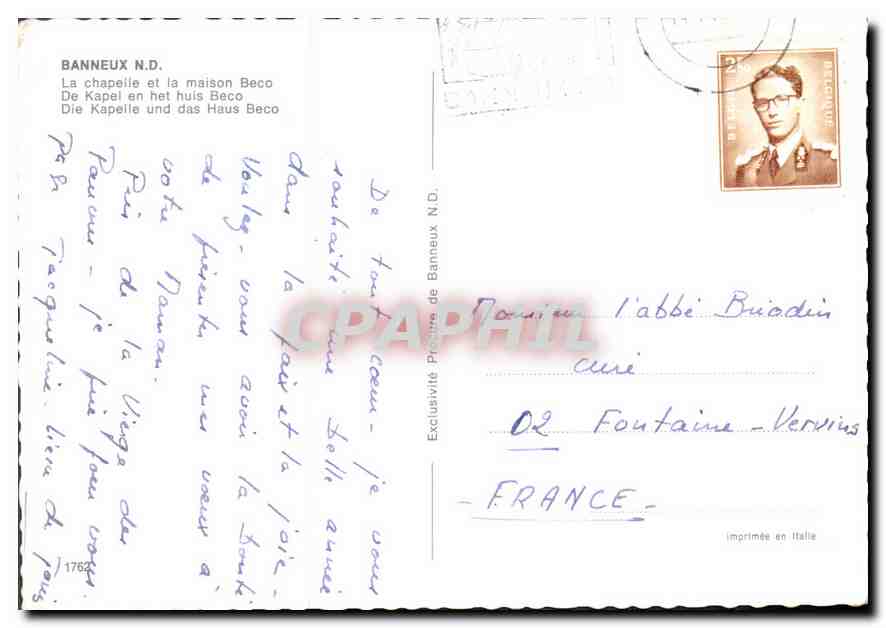 BANNEUX N.D.
La chapelle et la maison Beco
De Kapel en het huis Beco
Die Kapelle und das Haus Beco
De tout cœur - je vous
souhaite une belle année
dans la paix et la joie -
Voulez-vous avoir la bonté
de présenter mes vœux à
votre Maman.
Près de la Vierge des
Pauvres - je prie pour vous.
Jacqueline
1762
Exclusivité Procure de Banneux N.D.
CPAPHIL
BELGIQUE
Monsieur l'abbé Briadin
curé
02 Fontaine - Vervins
- FRANCE -
imprimée en Italie